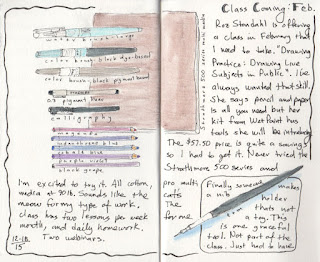 color brush-black dye-based
color brush-black pigment based
03 pigment liner
calligraphy
magenta
indanthrone blue
cobalt blue
purple violet
black grape
Strathmore 500 series multi media
I'm excited to try it. All cotton,
media at 90lb. Sounds like the
meow for my type of work.
Class has two lessons per week
month, and daily homework.
Two webinars.
12-18
15
Class Coming: Feb.
Roz Stendahl is offering
a class in February that
I need to take. "Drawing
Practice: Drawing Live
Subjects in Public". I've
always wanted that skill.
She says pencil and paper
is all you need but her
kit from Wet Paint has
tools she will be introducing.
The $57.50 price is quite a savings
so I had to get it. Never tried the
Strathmore 500 series and
pro multi
calls
The
for me
Finally someone makes
a nib holder
thats not
a toy. This
is one graceful
tool. Not part of the
class. Just had to have